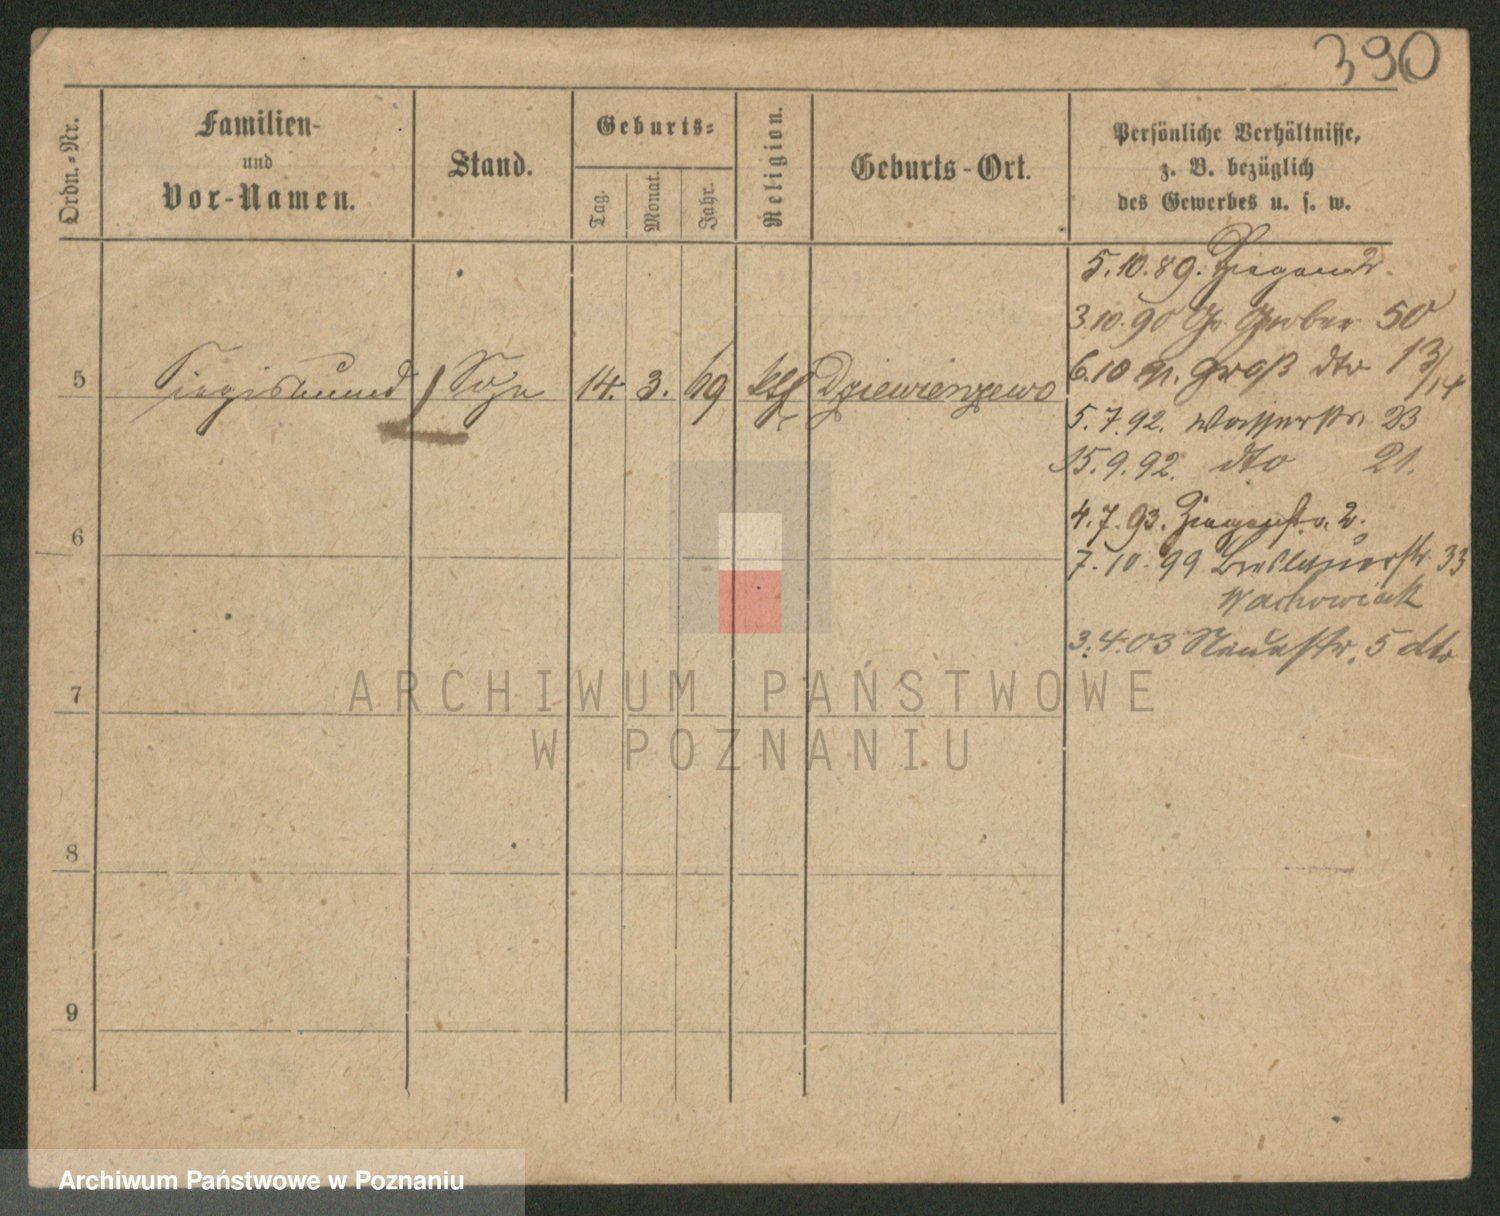 390
Ordn.-Nr.
Familien-
und
Vor-Namen.
Stand.
Geburts-
Tag.
Monat.
Jahr.
Religion.
Geburts-Ort.
Persönliche Verhältnisse,
z. B. bezüglich
des Gewerbes u. s. w.
5.10.89. 2.
3.10.90 Gr Gerber 50
5 Siegismund Sohn 14. 3. 69 Dziewierzewo
6.10 91. Groß dto 13/14
5.7.92. Wasserstr. 23
15.9.92. dto 21.
4.7.93. Ziegenstr. 2.
6
7.10.99 Breslauerstr. 33
Wachowiak
3.4.03 Neuestr. 5 dto
7
8
9
ARCHIWUM PAŃSTWOWE
W POZNANIU
Archiwum Państwowe w Poznaniu